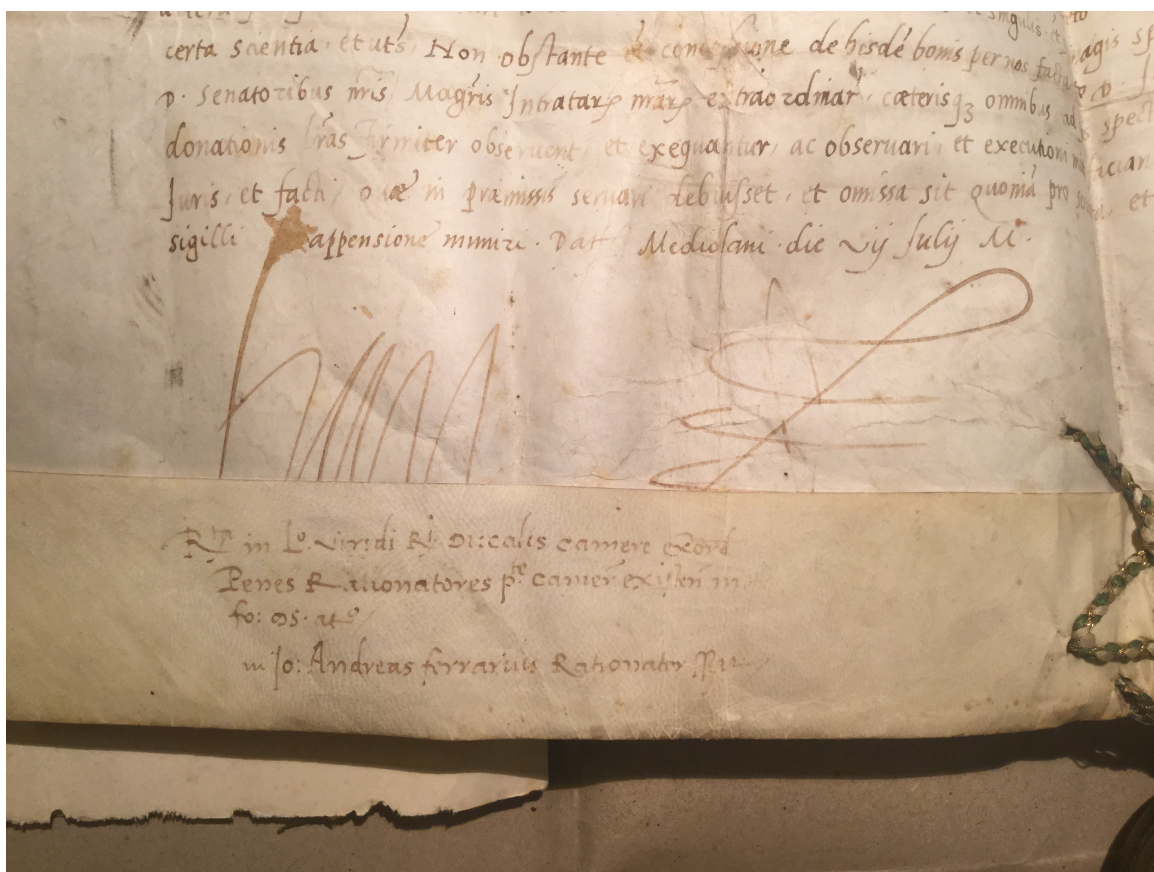 singulis, et
certa scientia, et uts, Non obstante concessione de hisdē bonis per nos facta magis sp
p. Senatoribus nr̄is Magr̄is Intratarꝝ nr̄arꝝ extraordinar, cæterisqꝫ omnibus ad spect
donationis lr̄as firmiter observent, et exequantur, ac observari, et executioni faciant
Juris, et facti, quæ in præmissis servari debuisset, et omissa sit quoniā pro et
sigilli appensione muniri. Dat Mediolani die vij Julij M.
Rta in Lo. viridi Rl. Ducalis camere extra
Penes Rationatores pte camer existen in
fo: 95. ato
Jo: Andreas ferrarius Rationator